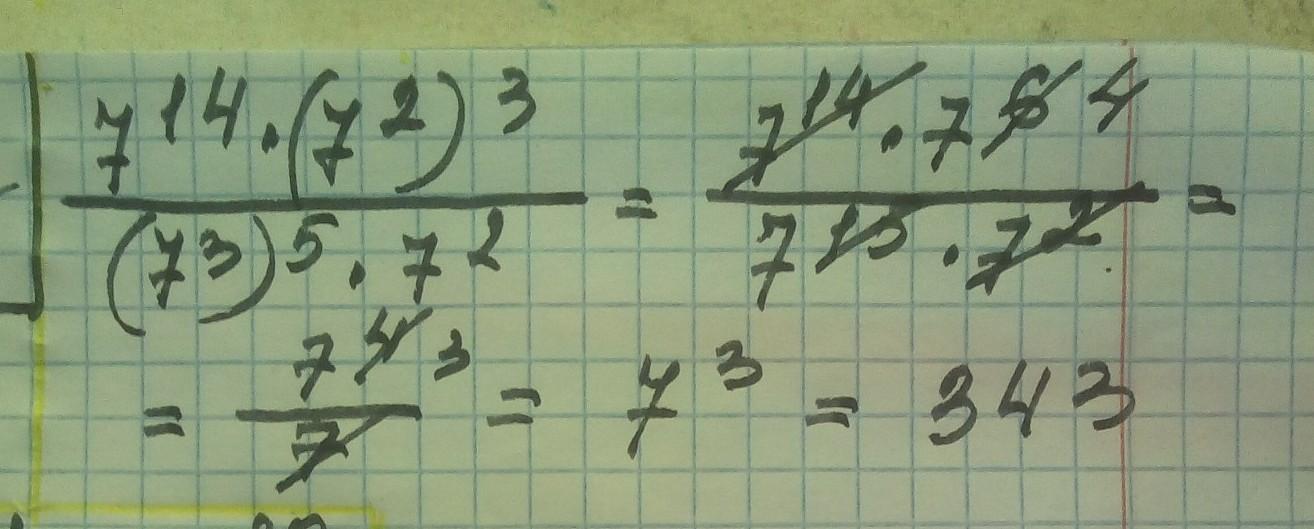 7^14 · (7^2)^3 / (7^3)^5 · 7^2 = 7^14 · 7^6 4 / 7^15 · 7^2 =
= 7^4 3 / 7 = 7^3 = 343